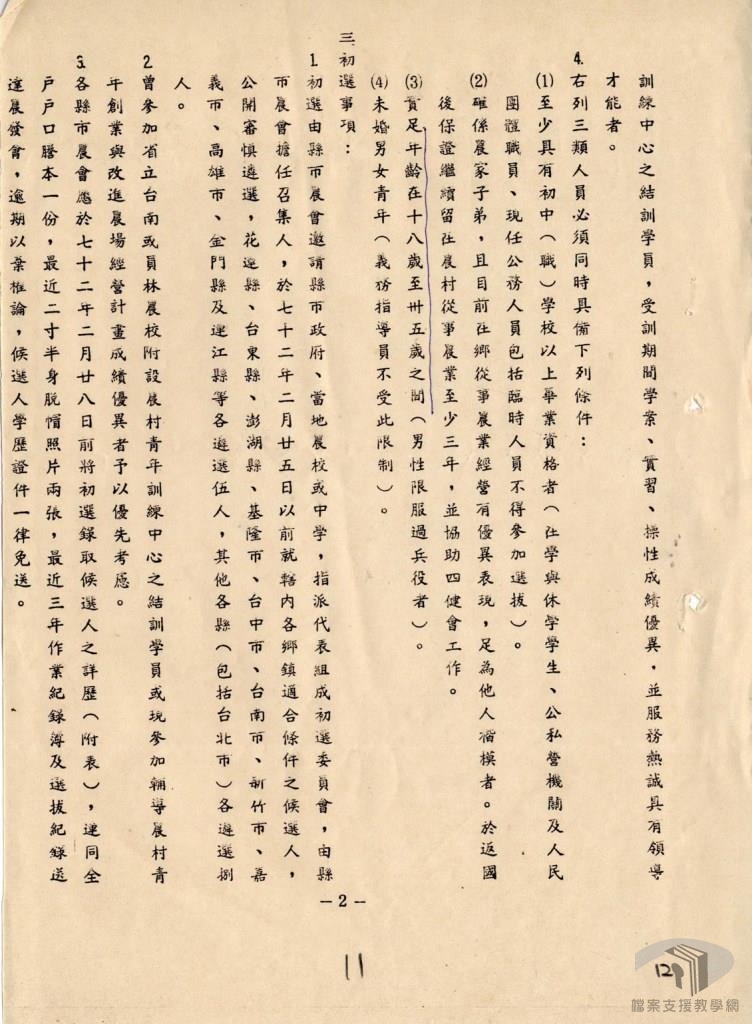 訓練中心之結訓學員，受訓期間學業、實習、操性成績優異，並服務熱誠具有領導
才能者。
4.右列三類人員必須同時具備下列條件：
(1)至少具有初中（職）學校以上畢業資格者（在學與休學學生、公私營機關及人民
團體職員、現任公務人員包括臨時人員不得參加選拔）。
(2)確係農家子弟，且目前在鄉從事農業經營有優異表現，足為他人楷模者。於返國
後保證繼續留在農村從事農業至少三年，並協助四健會工作。
(3)實足年齡在十八歲至卅五歲之間（男性限服過兵役者）。
(4)未婚男女青年（義務指導員不受此限制）。
三、初選事項：
1.初選由縣市農會邀請縣市政府、當地農校或中學，指派代表組成初選委員會，由縣
市農會擔任召集人，於七十二年二月廿五日以前就轄內各鄉鎮適合條件之候選人，
公開審慎遴選，花蓮縣、台東縣、澎湖縣、基隆市、台中市、台南市、新竹市、嘉
義市、高雄市、金門縣及連江縣等各遴選伍人，其他各縣（包括台北市）各遴選捌
人。
2.曾參加省立台南或員林農校附設農村青年訓練中心之結訓學員或現參加輔導農村青
年創業與改進農場經營計畫成績優異者予以優先考慮。
3.各縣市農會應於七十二年二月廿八日前將初選錄取候選人之詳歷（附表），連同全
戶戶口謄本一份，最近二寸半身脫帽照片兩張，最近三年作業紀錄簿及選拔紀錄送
達農發會，逾期以棄權論，候選人學歷證件一律免送。
－2－
11
12
檔案支援教學網